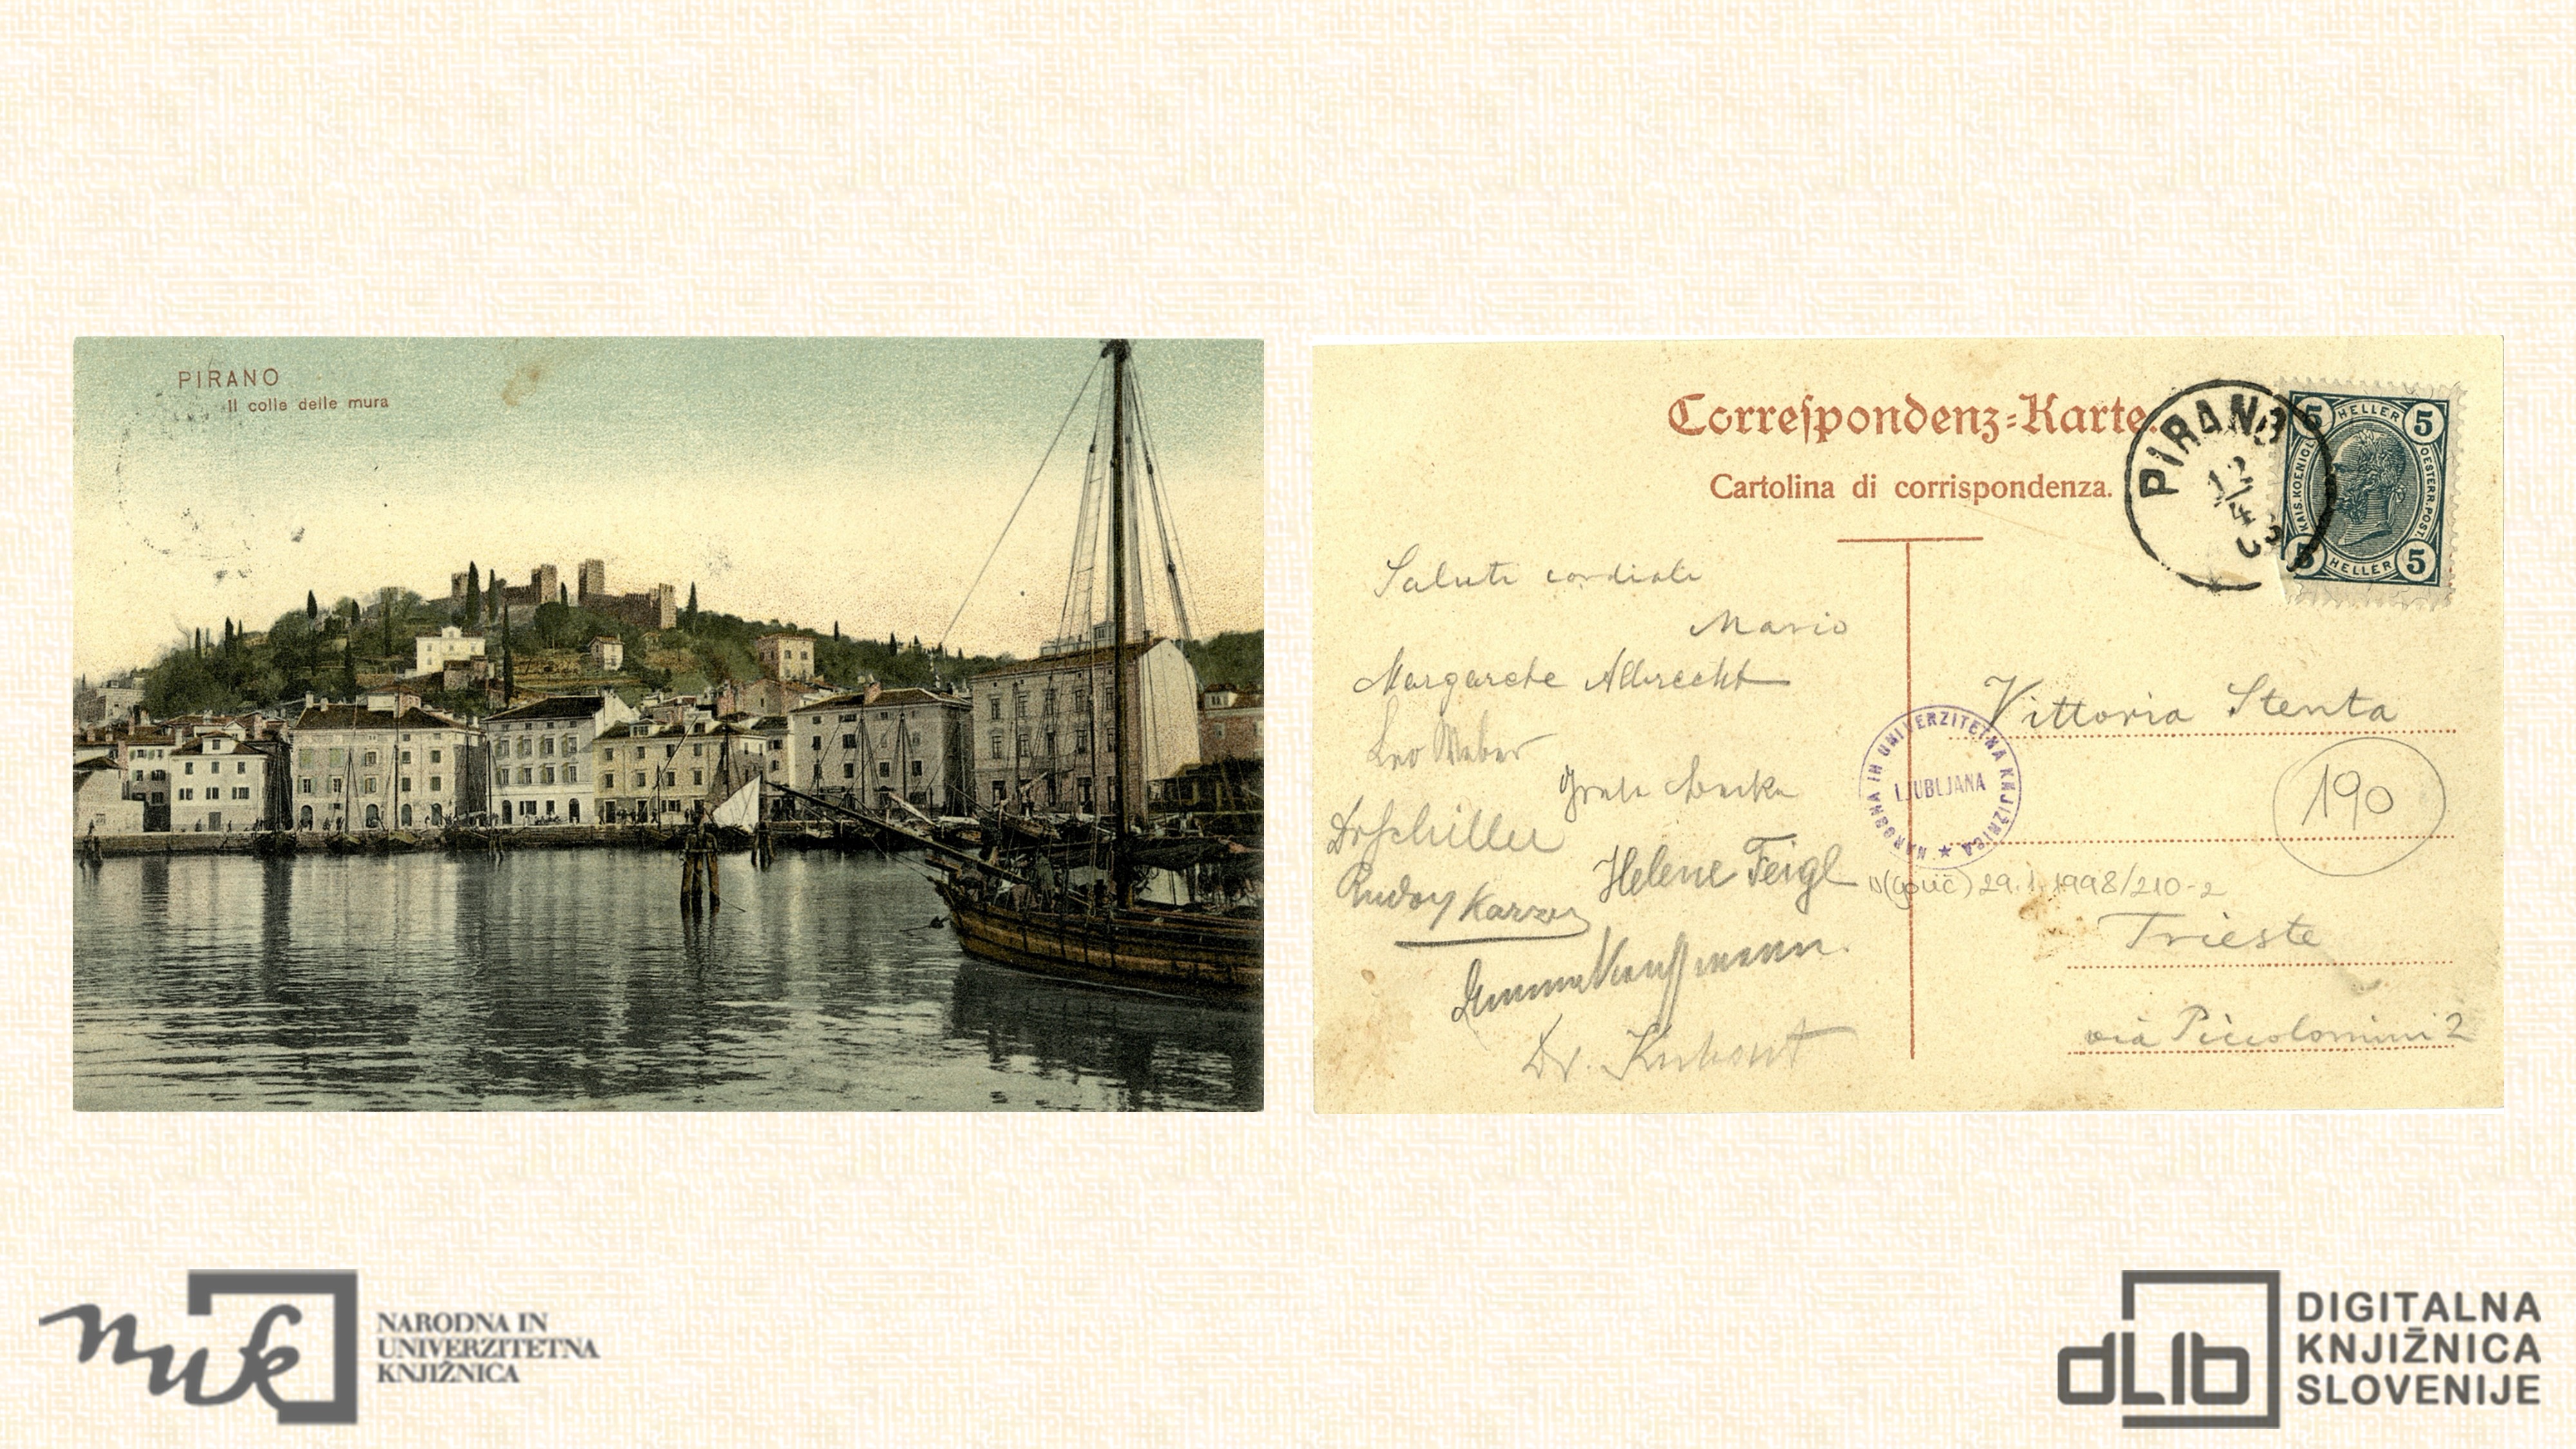 PIRANO
Il colle delle mura
Correspondenz-Karte.
Cartolina di corrispondenza.
PIRANO
12
4
5 HELLER 5
KAIS. KOENIGL. OESTERR. POST.
5 HELLER 5
Saluti cordiali
Mario
Margarete Albrecht
Leo Weber
Dr Schiller
Helene Feigl
Emma Kauffmann.
Dr.
Vittoria Stenta
NARODNA IN UNIVERZITETNA KNJIŽNICA
LJUBLJANA
190
29. 1. 1998/210-2
Trieste
via Piccolomini 2
nuk
NARODNA IN
UNIVERZITETNA
KNJIŽNICA
dLib
DIGITALNA
KNJIŽNICA
SLOVENIJE